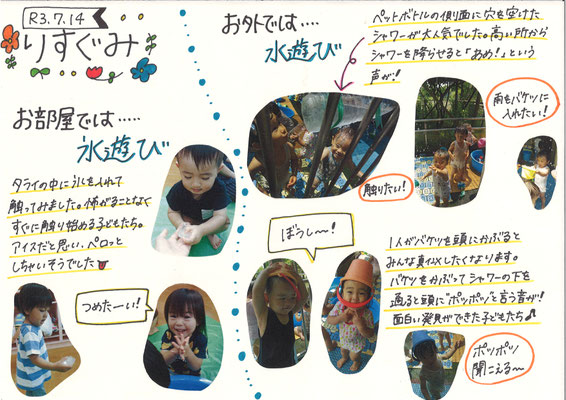 R3.7.14
りすぐみ
お部屋では‥‥‥
氷遊び
タライの中に氷を入れて
触ってみました。怖がることなく
すぐに触り始める子どもたち。
アイスだと思い、ペロッと
しちゃいそうでした
つめたーい!
お外では‥‥
水遊び
ペットボトルの側面に穴を空けた
シャワーが大人気でした。高い所から
シャワーを降らせると「あめ!」という
声が!
触りたい!
雨をバケツに
入れたい!
ぼうし〜!
1人がバケツを頭にかぶると
みんな真似したくなります。
バケツをかぶってシャワーの下を
通ると頭に"ポツポツ"と言う音が!
面白い発見ができた子どもたち♪
ポツポツ
聞こえる〜